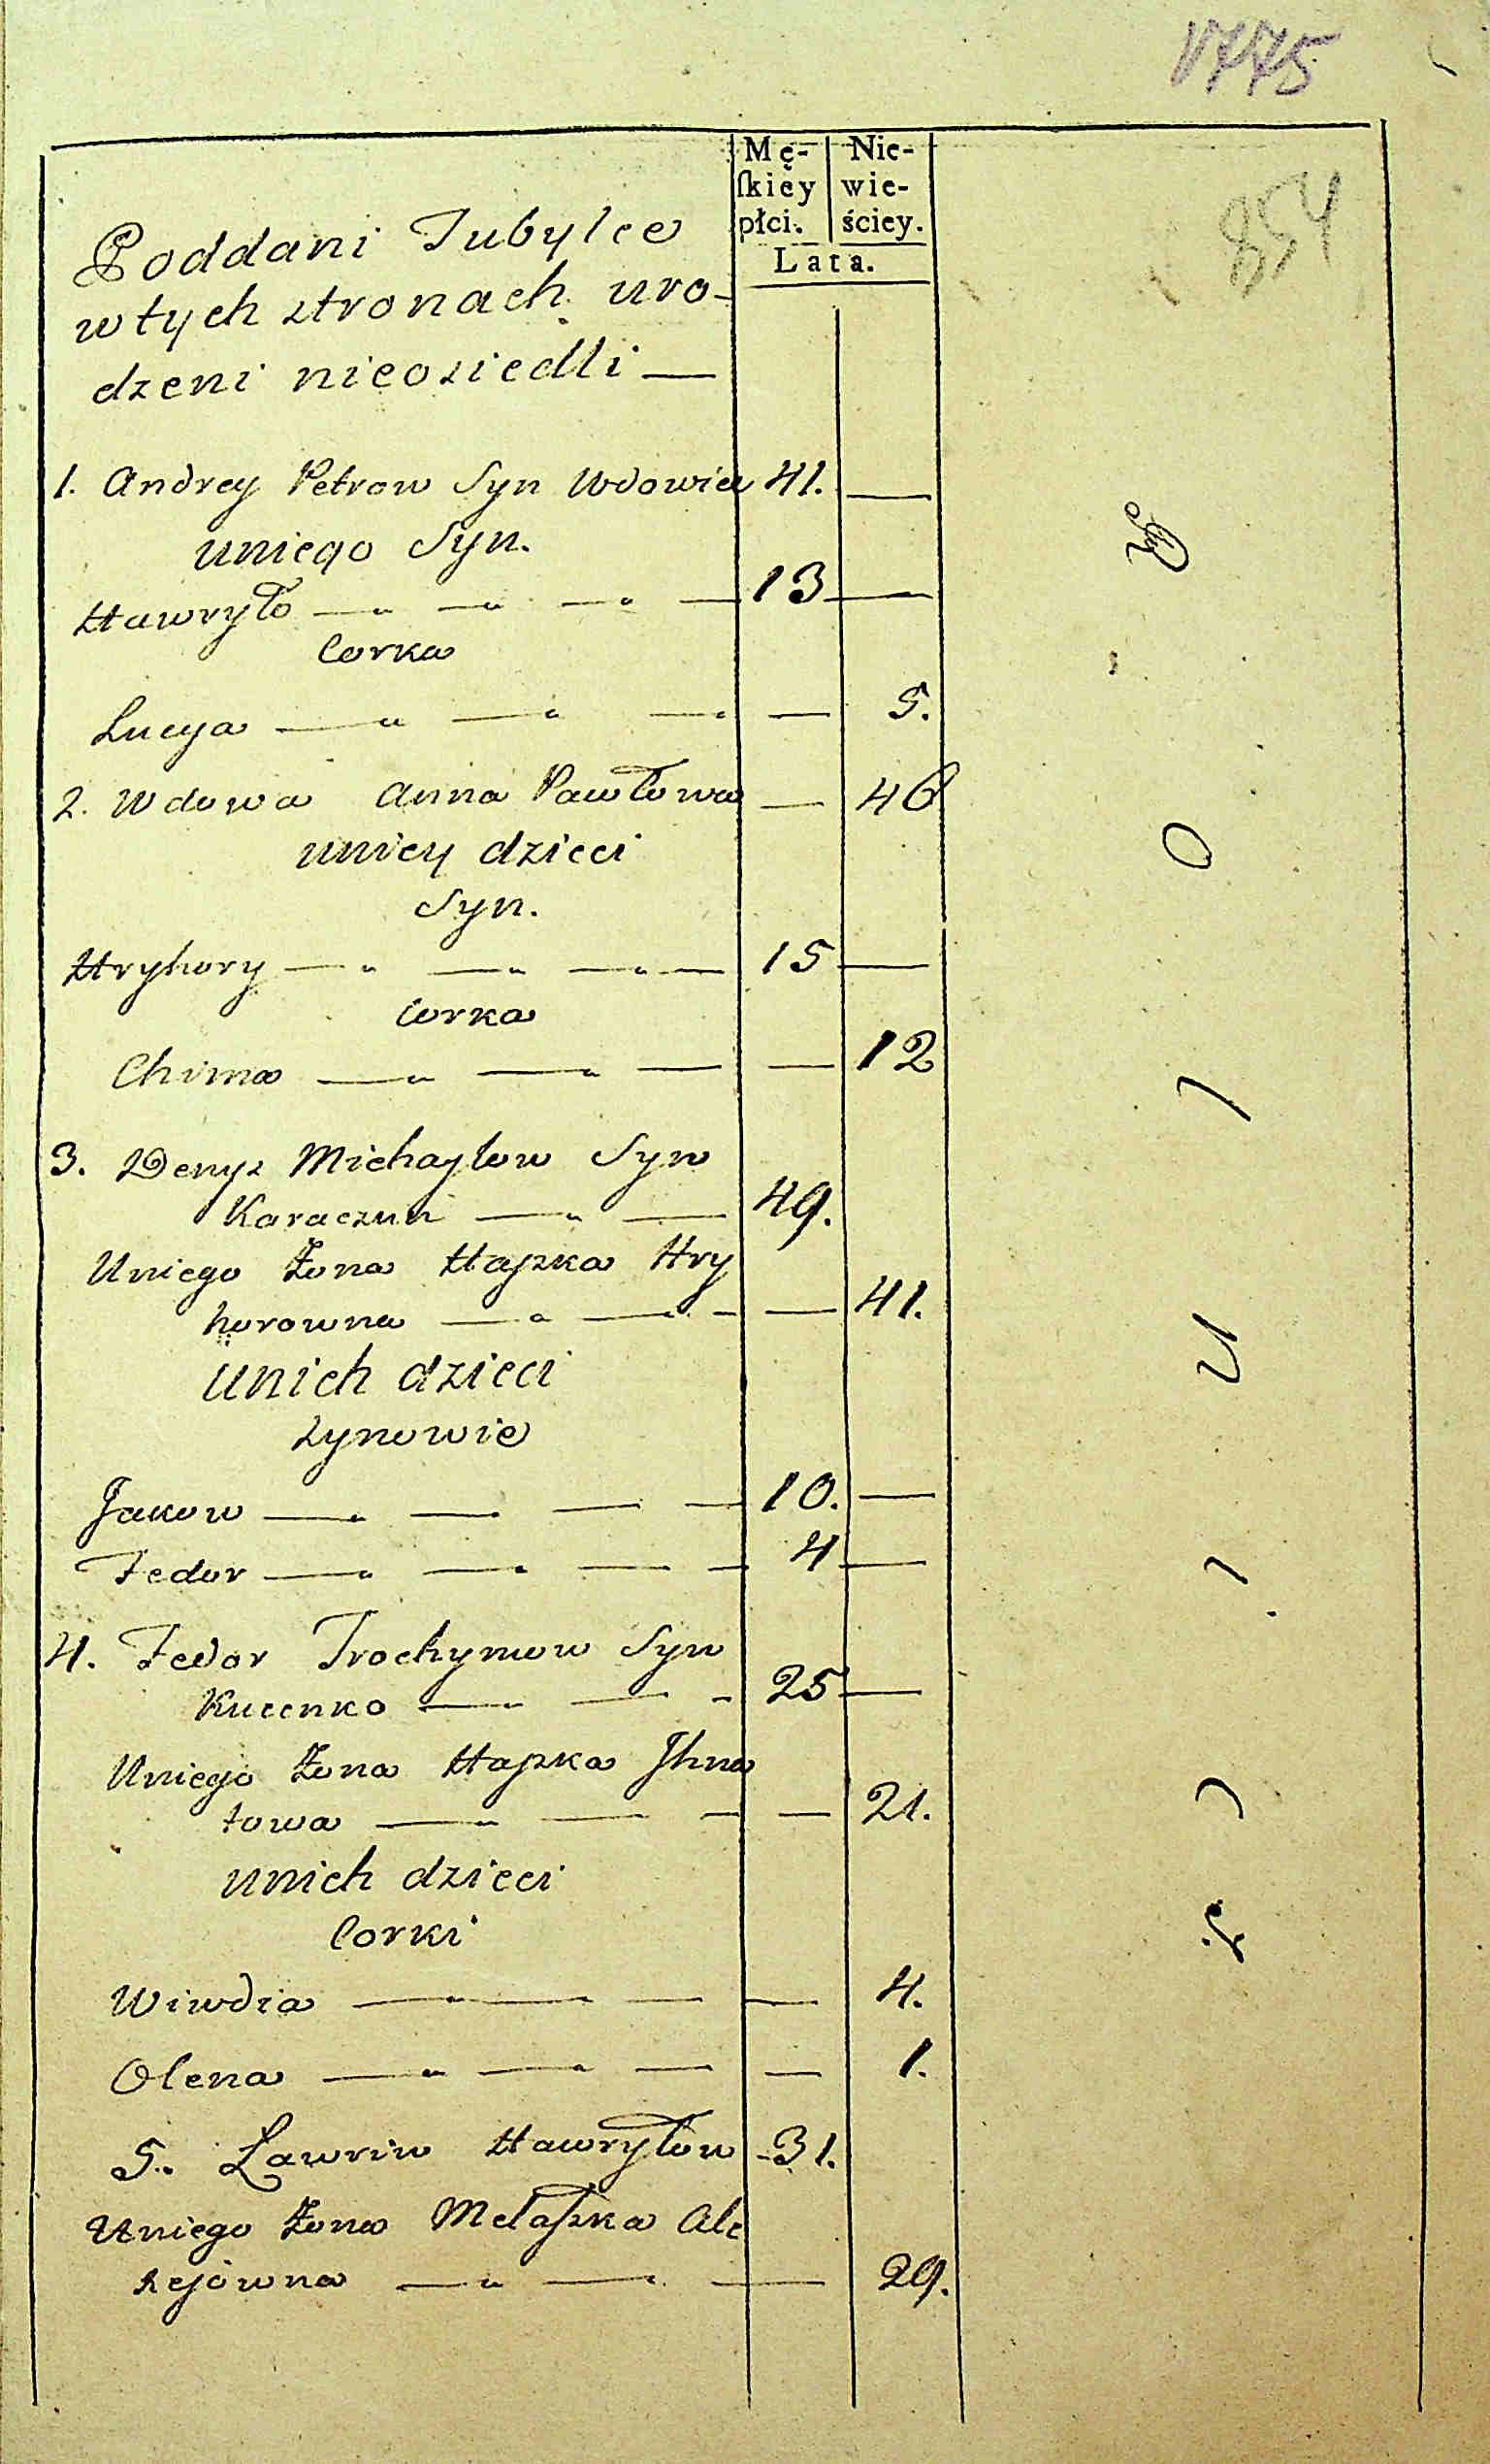 1775
854
Mę-
ſkiey
płci.
Nie-
wie-
ściey.
Lata.
Poddani Tubylce
w tych stronach uro-
dzeni nieosiedli —
1. Andrey Petrow Syn Wdowiec 41. —
uniego Syn.
Hawryło — — — — 13 —
Corka
Lucya — — — — 5.
2. Wdowa Anna Pawłowa — 46
uniey dzieci
Syn.
Hryhory — — — — 15 —
Corka
Chima — — — — 12
3. Denys Michayłow Syn
Karaczun — — 49.
Uniego Żona Hapka Hry
horowna — — — — 41.
unich dzieci
synowie
Jakow — — — — 10. —
Fedor — — — — 4 —
4. Fedor Trochymow Syn
Kucenko — — - 25 —
Uniego Żona Hapka Jhna
towa — — — — 21.
unich dzieci
Corki
Wiwdia — — — — 4.
Olena — — — — 1.
5. Ławrin Hawryłow 31.
Uniego Żona Melaszka Ale
xejowna — — — 29.